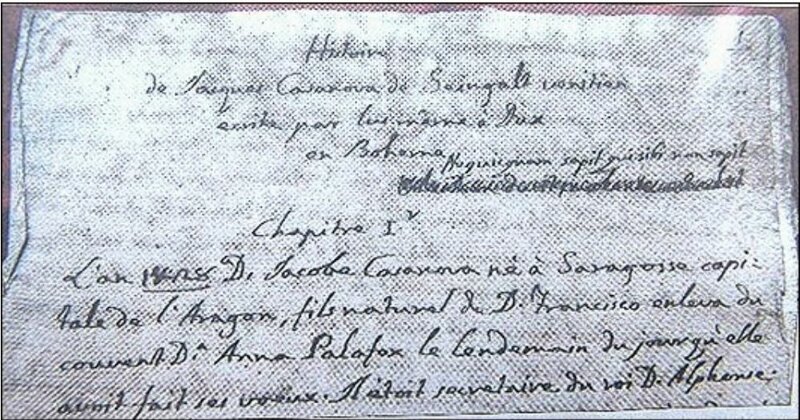 Histoire
de Jacques Casanova de Seingalt venitien
ecrite par lui même à Dux
en Boheme Nequicquam sapit qui sibi non sapit
Chapitre I^r
L'an D. Jacobe Casanova né à Saragosse capi-
tale de l'Aragon, fils naturel de D. Francisco enleva du
couvent D.ª Anna Palafox le lendemain du jour qu'elle
avoit fait ses voeux. Il étoit secretaire du roi D. Alphonse.